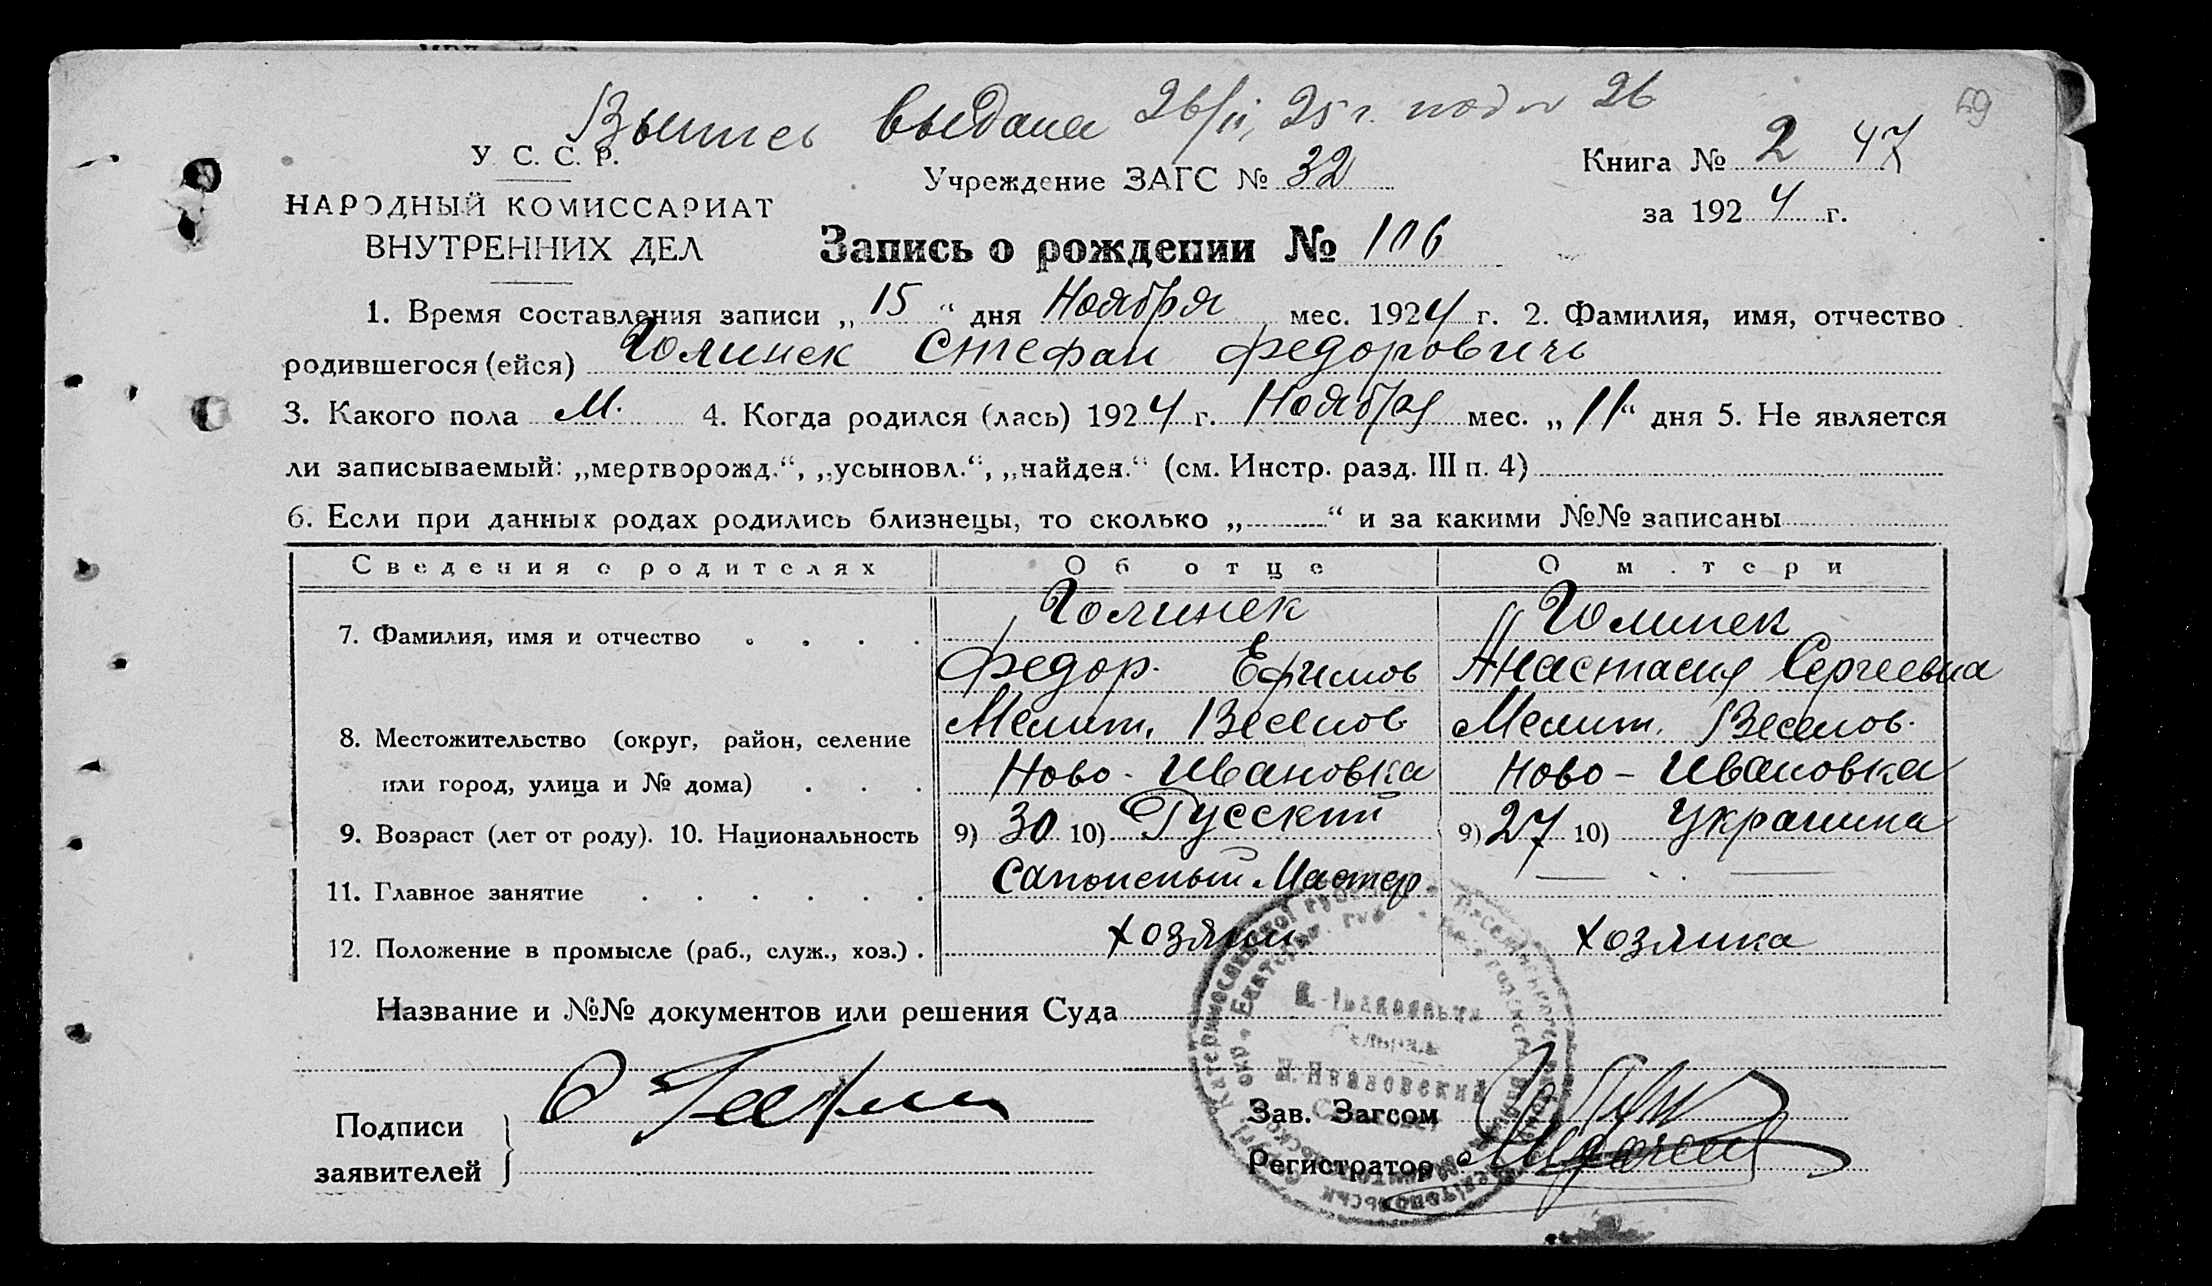 59
Выпись выдана 26/II, 25 г. под № 26
У. С. С. Р.
НАРОДНЫЙ КОМИССАРИАТ
ВНУТРЕННИХ ДЕЛ
Учреждение ЗАГС № 32
Книга № 2 47
за 1924 г.
Запись о рождении № 106
1. Время составления записи „15“ дня Ноября мес. 1924 г. 2. Фамилия, имя, отчество
родившегося (ейся) Голинек Стефан Федоровичь
3. Какого пола М. 4. Когда родился (лась) 1924 г. Ноября мес. „11“ дня 5. Не является
ли записываемый: „мертворожд.“, „усыновл.“, „найден.“ (см. Инстр. разд. III п. 4)
6. Если при данных родах родились близнецы, то сколько „ “ и за какими №№ записаны
Сведения о родителях Об отце О матери
7. Фамилия, имя и отчество . . . . Голинек Голинек
Федор. Ефимов Анастасия Сергеевна
8. Местожительство (округ, район, селение Мелит. Веселов Мелит. Веселов.
или город, улица и № дома) . . . Ново-Ивановка Ново-Ивановка
9. Возраст (лет от роду). 10. Национальность 9) 30 10) Русский 9) 27 10) Украинка
11. Главное занятие . . . . . . Мастер
12. Положение в промысле (раб., служ., хоз.) . хозяин хозяйка
Название и №№ документов или решения Суда
Подписи
заявителей
Н. Ивановский
Зав. Загсом
Регистратор